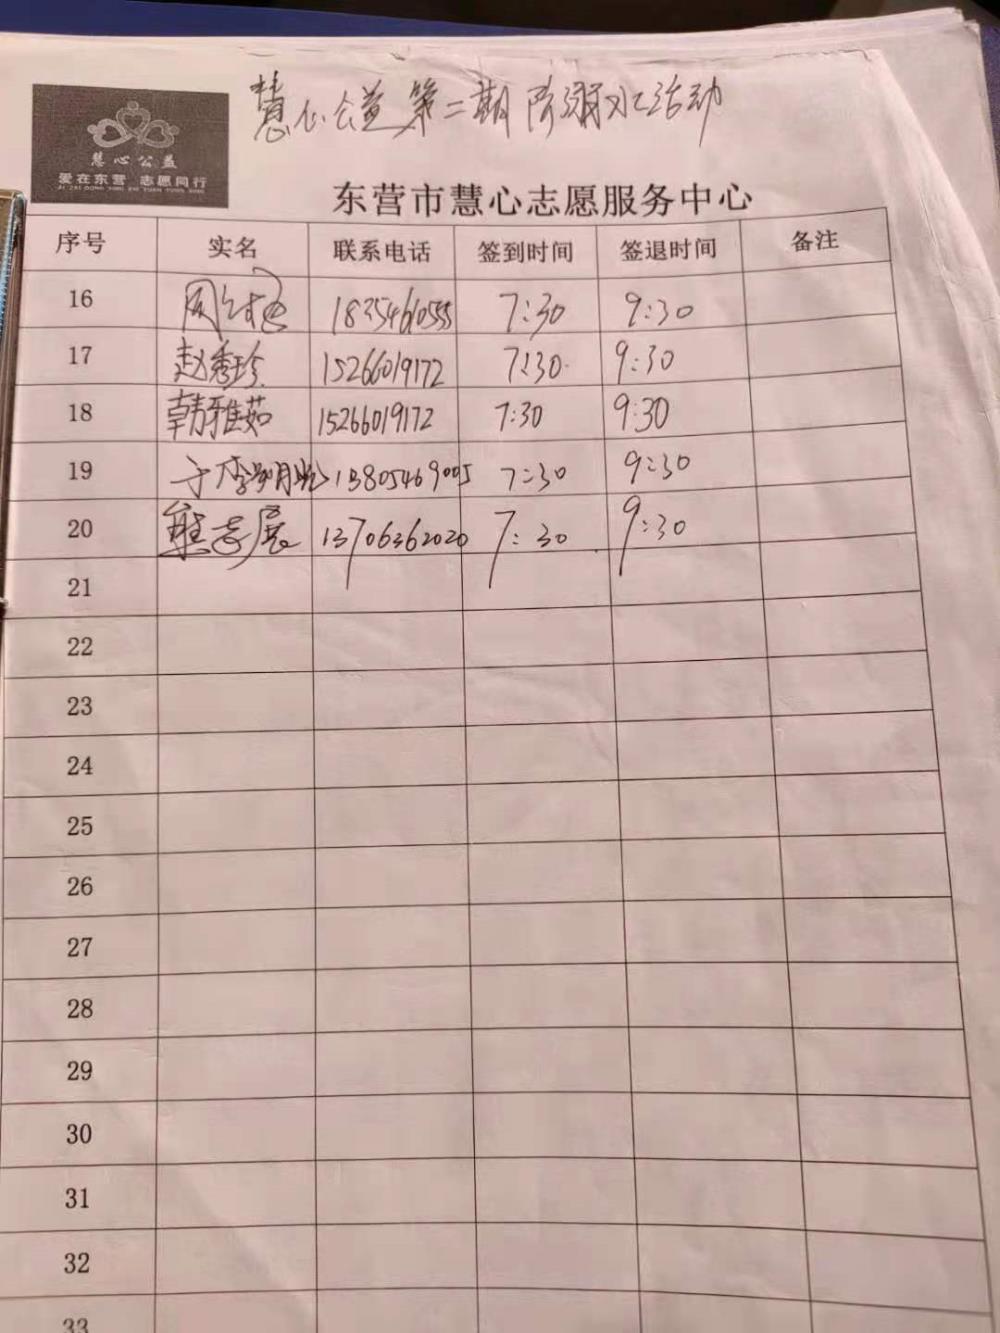 慧心公益第二期防溺水活动
慧心公益
爱在东营 志愿同行
AI ZAI DONG YING ZHI YUAN TONG XING
东营市慧心志愿服务中心
序号 实名 联系电话 签到时间 签退时间 备注
16 周 18354610555 7:30 9:30
17 赵秀珍 15266019172 7:30 9:30
18 韩雅茹 15266019172 7:30 9:30
19 于李明 13805469005 7:30 9:30
20 熊志展 13706362020 7:30 9:30
21
22
23
24
25
26
27
28
29
30
31
32
33